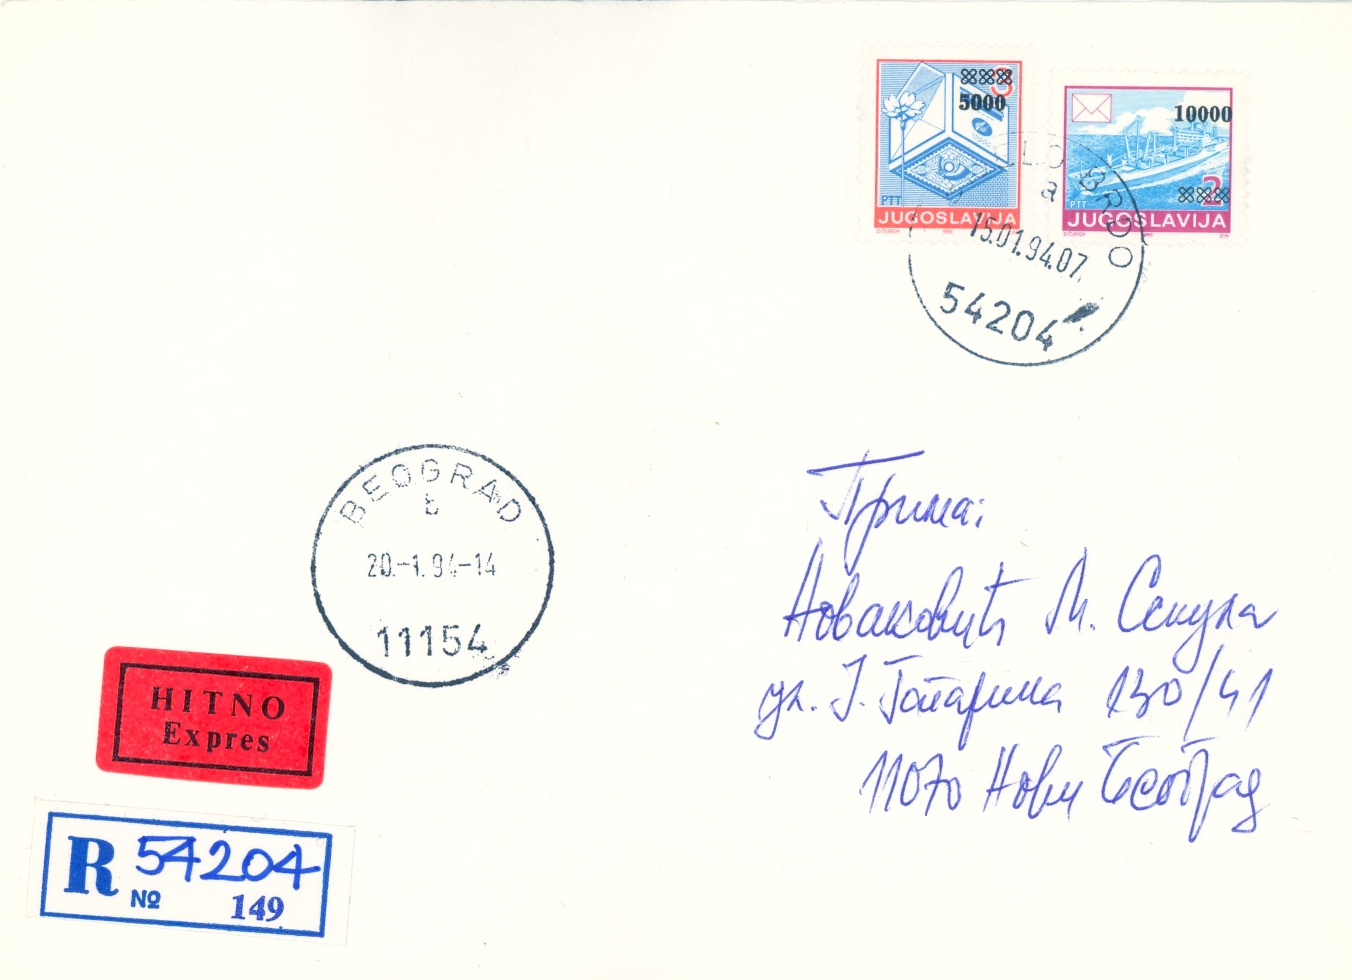 3
5000
PTT
JUGOSLAVIJA
10000
2
PTT
JUGOSLAVIJA
a
15.01.94.07
54204
BEOGRAD
b
20.-1.94-14
11154
Прима:
Новаковић М. Секула
ул. Ј. Гагарина 130/41
11070 Нови Београд
HITNO
Expres
R 54204
No 149